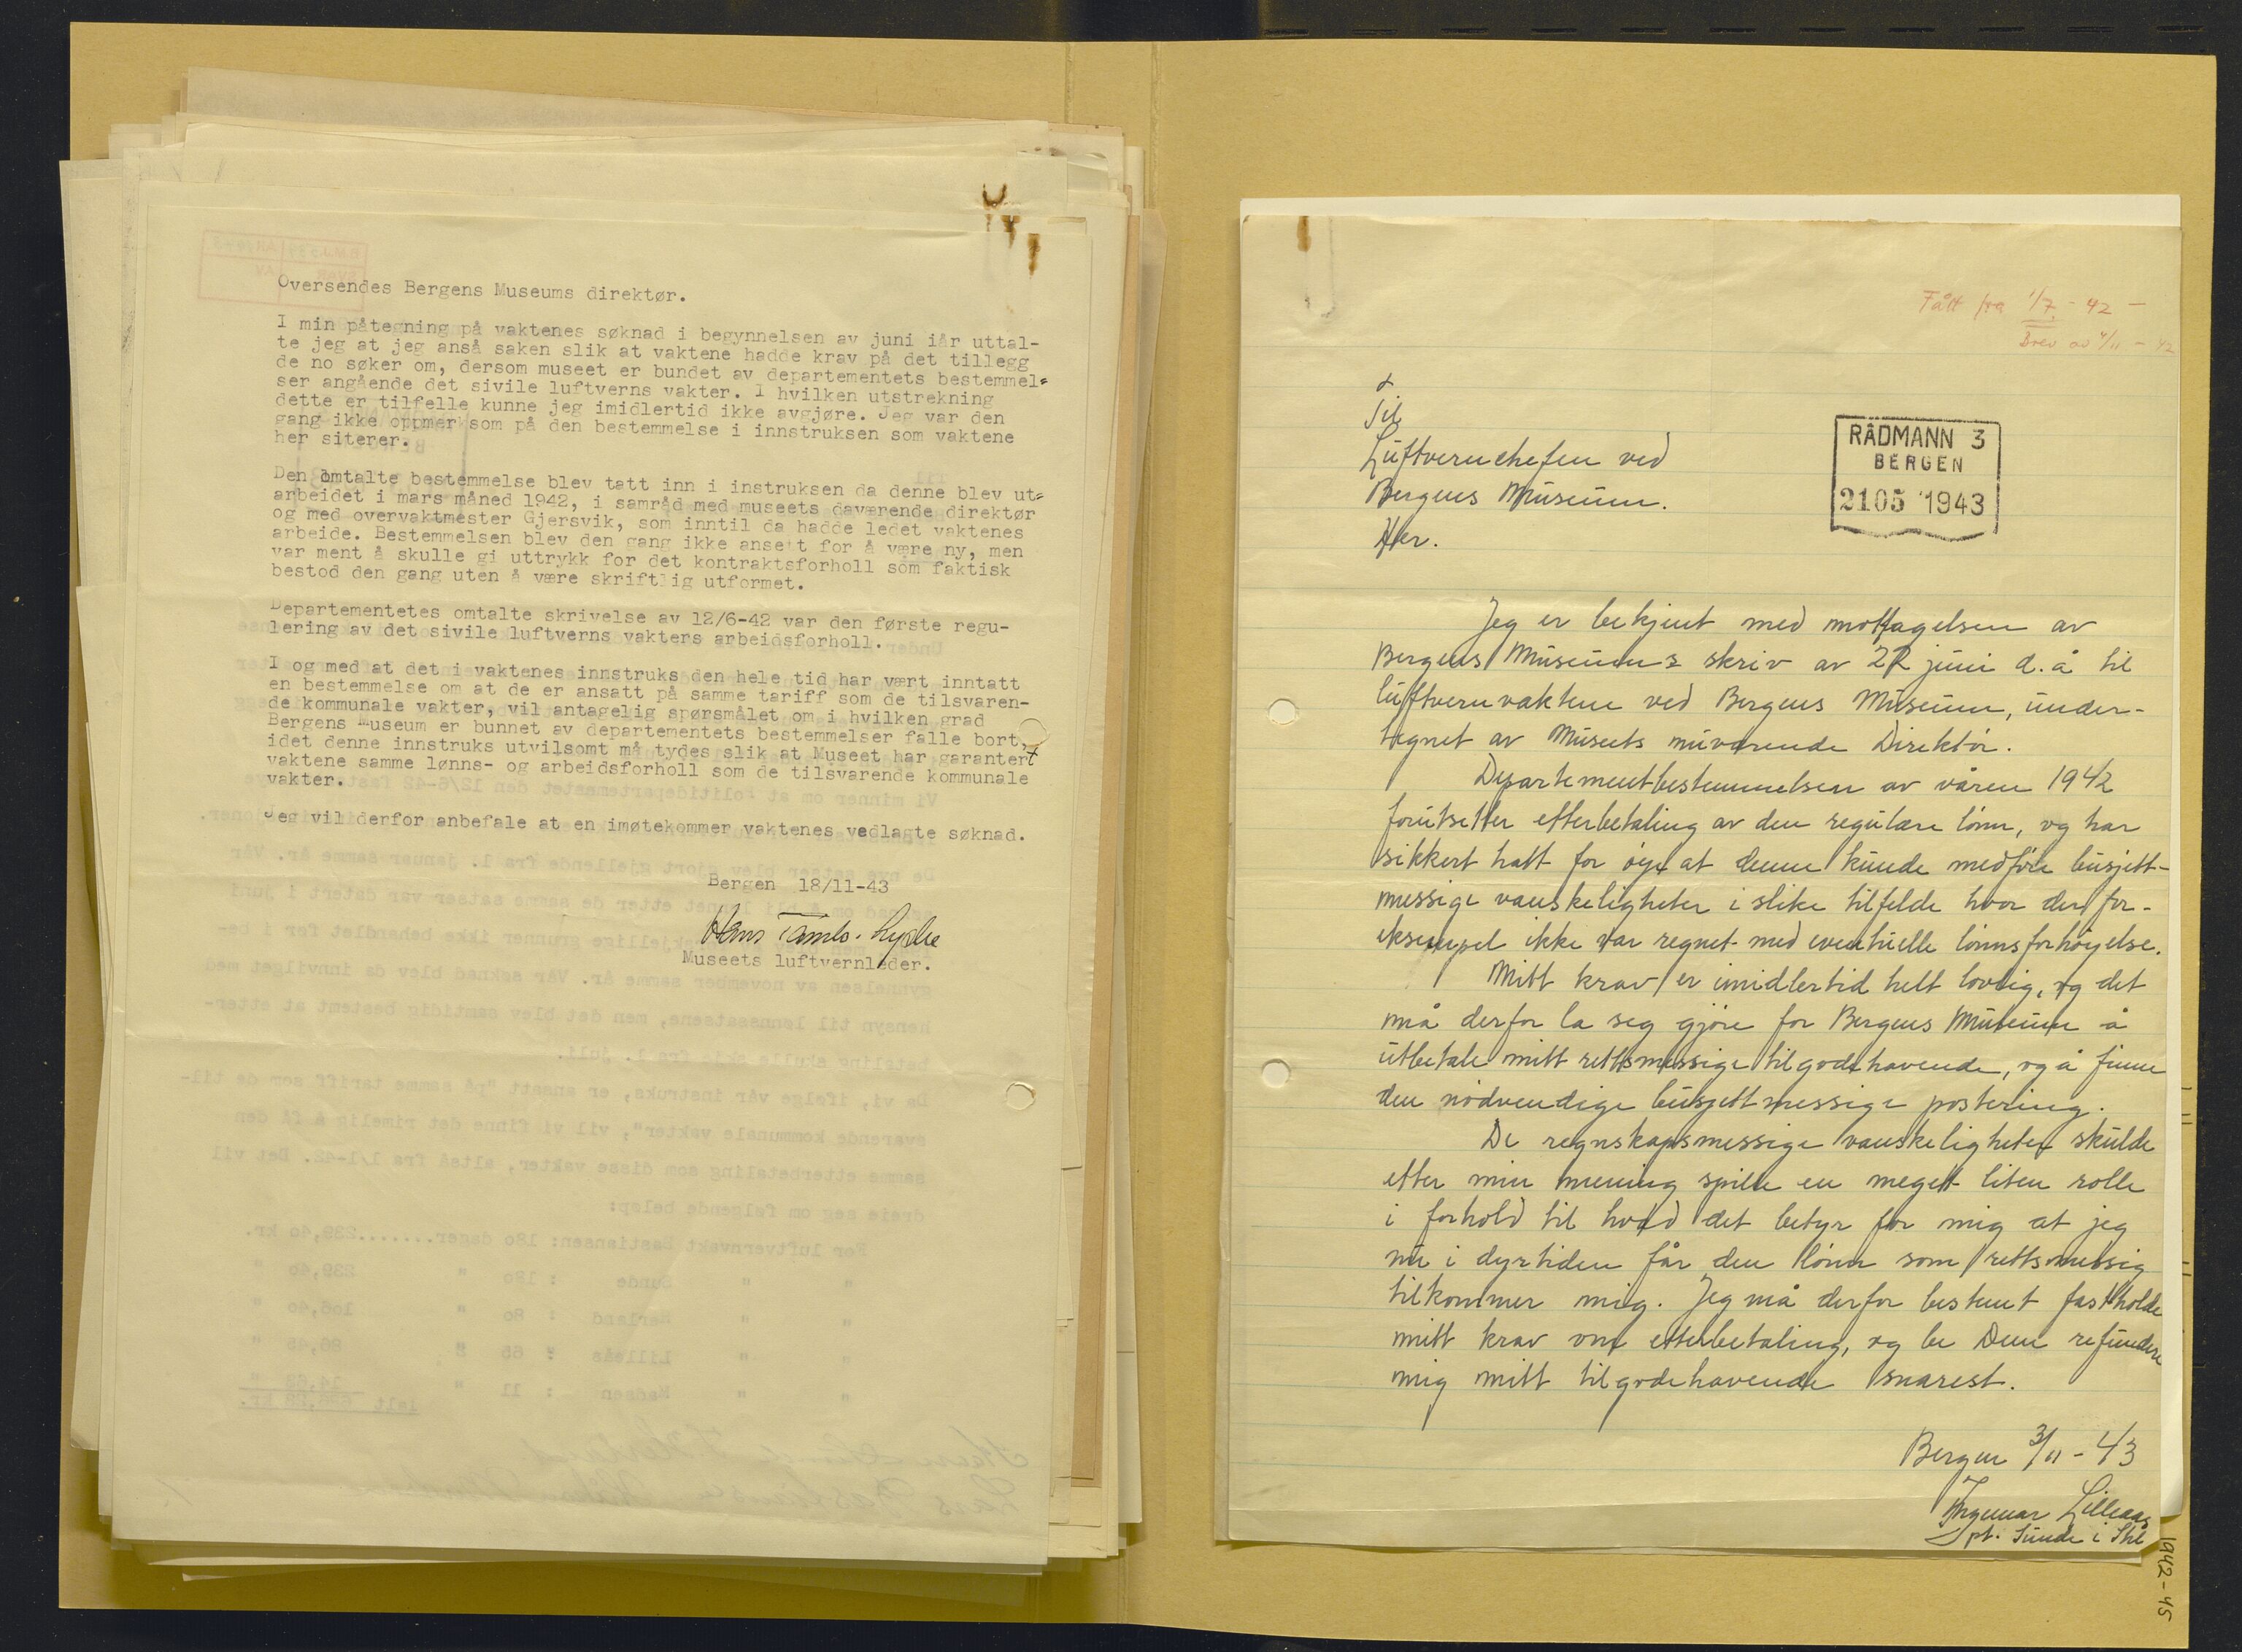 Oversendes Bergens Museums direktør.
I min påtegning på vaktenes søknad i begynnelsen av juni iår uttal-
te jeg at jeg anså saken slik at vaktene hadde krav på det tillegg
de no søker om, dersom museet er bundet av departementets bestemmel=
ser angående det sivile luftverns vakter. I hvilken utstrekning
dette er tilfelle kunne jeg imidlertid ikke avgjøre. Jeg var den
gang ikke oppmerksom på den bestemmelse i innstruksen som vaktene
her siterer.
Den omtalte bestemmelse blev tatt inn i instruksen da denne blev ut=
arbeidet i mars måned 1942, i samråd med museets daværende direktør
og med overvaktmester Gjersvik, som inntil da hadde ledet vaktenes
arbeide. Bestemmelsen blev den gang ikke ansett for å være ny, men
var ment å skulle gi uttrykk for det kontraktsforholl som faktisk
bestod den gang uten å være skriftlig utformet.
Departementetes omtalte skrivelse av 12/6-42 var den første regu-
lering av det sivile luftverns vakters arbeidsforholl.
I og med at det i vaktenes innstruks den hele tid har vært inntatt
en bestemmelse om at de er ansatt på samme tariff som de tilsvaren-
de kommunale vakter, vil antagelig spørsmålet om i hvilken grad
Bergens Museum er bunnet av departementets bestemmelser falle bort,
idet denne innstruks utvilsomt må tydes slik at Museet har garantert
vaktene samme lønns- og arbeidsforholl som de tilsvarende kommunale
vakter.
Jeg vil derfor anbefale at en imøtekommer vaktenes vedlagte søknad.
Bergen 18/11-43
Hans Tambs-Lyche
Museets luftvernleder.
Fått fra 1/7 - 42 -
Brev av 4/11 - 42
RÅDMANN 3
BERGEN
2105 1943
Til
Luftvernchefen ved
Bergens Museum.
Her.
Jeg er bekjent med mottagelsen av
Bergens Museums skriv av 22 juni d.å til
luftvernvaktene ved Bergens Museum, under-
tegnet av Museets nuværende Direktór.
Departementbestemmelsen av våren 1942
forutsetter efterbetaling av den regulære lónn, og har
sikkert hatt for óye at denne kunde medfóre busjett-
messige vanskeligheter i slike tilfelde hvor der for-
eksempel ikke var regnet med eventuelle lónnsforhóyelse.
Mitt krav er imidlertid helt lovlig, og det
må derfor la seg gjóre for Bergens Museum å
utbetale mitt rettsmessige tilgodehavende, og å finne
den nódvendige busjettmessige postering.
De regnskapsmessige vanskeligheter skulde
etter min mening spille en meget liten rolle
i forhold til hvad det betyr for mig at jeg
nu i dyrtiden får den lónn som rettsmessig
tilkommer mig. Jeg må derfor bestemt fastholde
mitt krav om etterbetaling, og be Dem refundere
mig mitt tilgodehavende snarest.
Bergen 3/11 - 43
Ingemar Lilleaas
pt. Sunde i Shl
1942-45